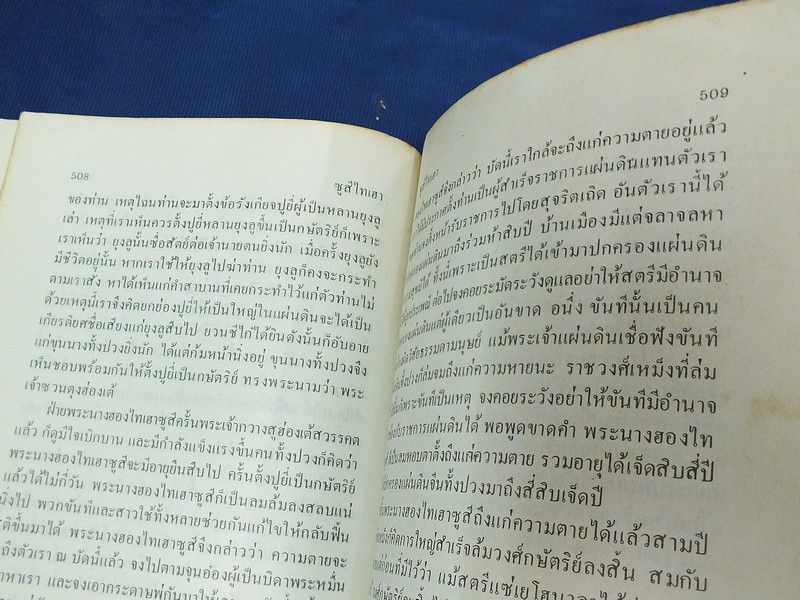 508
ซูสีไทเฮา
ของท่าน เหตุไฉนท่านจะมาตั้งข้อรังเกียจปูยี่ผู้เป็นหลานยุงลู
เล่า เหตุที่เราเห็นควรตั้งปูยี่หลานยุงลูขึ้นเป็นกษัตริย์ก็เพราะ
เราเห็นว่า ยุงลูนั้นซื่อสัตย์ต่อเจ้านายตนยิ่งนัก เมื่อครั้งยุงลูยัง
มีชีวิตอยู่นั้น หากเราใช้ให้ยุงลูไปฆ่าท่าน ยุงลูก็คงจะกระทำ
ตามเราสั่ง หาได้เห็นแก่คำสาบานที่เคยกระทำไว้แก่ตัวท่านไม่
ด้วยเหตุนี้เราจึงคิดยกย่องปูยี่ให้เป็นใหญ่ในแผ่นดินจะได้เป็น
เกียรติยศชื่อเสียงแก่ยุงลูสืบไป ยวนซีไกได้ยินดังนั้นก็อับอาย
แก่ขุนนางทั้งปวงยิ่งนัก ได้แต่ก้มหน้านิ่งอยู่ ขุนนางทั้งปวงจึง
เห็นชอบพร้อมกันให้ตั้งปูยี่เป็นกษัตริย์ ทรงพระนามว่า พระ
เจ้าซวนตุงฮ่องเต้
ฝ่ายพระนางฮองไทเฮาซูสีครั้นพระเจ้ากวางสูฮ่องเต้สวรรคต
แล้ว ก็ดูมีใจเบิกบาน และมีกำลังแข็งแรงขึ้นคนทั้งปวงก็คิดว่า
พระนางฮองไทเฮาซูสีจะมีอายุยืนสืบไป ครั้นตั้งปูยี่เป็นกษัตริย์
แล้วได้ไม่กี่วัน พระนางฮองไทเฮาซูสีก็เป็นลมล้มลงสลบแน่
นิ่งไป พวกขันทีและสาวใช้ทั้งหลายช่วยกันแก้ไขให้กลับฟื้น
ขึ้นมาได้ พระนางฮองไทเฮาซูสีจึงกล่าวว่า ความตายจะ
ถึงตัวเรา ณ บัดนี้แล้ว จงไปตามจุนอ๋องผู้เป็นบิดาพระหมื่น
มาหาเรา และจงเอากระดาษพู่กันมาให้
509
จึงกล่าวว่า บัดนี้เราใกล้จะถึงแก่ความตายอยู่แล้ว
ประกาศตั้งท่านเป็นผู้สำเร็จราชการแผ่นดินแทนตัวเรา
ตั้งหน้ารับราชการไปโดยสุจริตเถิด อันตัวเรานี้ได้
ครองแผ่นดินมาถึงร่วมห้าสิบปี บ้านเมืองมีแต่จลาจลหา
ได้ ทั้งนี้เพราะเป็นสตรีได้เข้ามาปกครองแผ่นดิน
ต่อไปจงคอยระมัดระวังดูแลอย่าให้สตรีมีอำนาจ
แผ่นดินแต่ผู้เดียวเป็นอันขาด อนึ่ง ขันทีนั้นเป็นคน
วิสัยธรรมดามนุษย์ แม้พระเจ้าแผ่นดินเชื่อฟังขันที
ทั้งปวงก็ล่มจมถึงแก่ความหายนะ ราชวงศ์เหม็งที่ล่ม
ก็เพราะขันทีเป็นเหตุ จงคอยระวังอย่าให้ขันทีมีอำนาจ
ราชการแผ่นดินได้ พอพูดขาดคำ พระนางฮองไท
ลมหอบตาตั้งถึงแก่ความตาย รวมอายุได้เจ็ดสิบสี่ปี
ครองแผ่นดินจีนทั้งปวงมาถึงสี่สิบเจ็ดปี
พระนางฮองไทเฮาซูสีถึงแก่ความตายได้แล้วสามปี
ก็คิดการใหญ่สำเร็จล้มวงศ์กษัตริย์ลงสิ้น สมกับ
ก่อนที่มีไว้ว่า แม้สตรีแซ่เยโฮนาลา